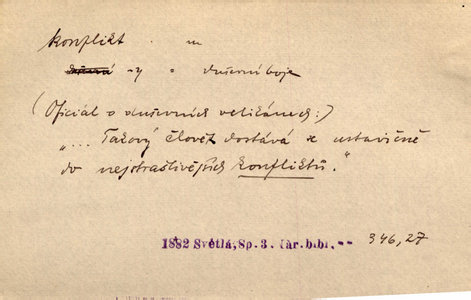 Konflikt . m
-y = duševní boje
(Oficiál o duševních velikánech:)
„... Takový člověk dostává se ustavičně
do nejstrašlivějších konfliktů."
1882 Světlá, Sp. 3. Nár. bibl. -- 346,27